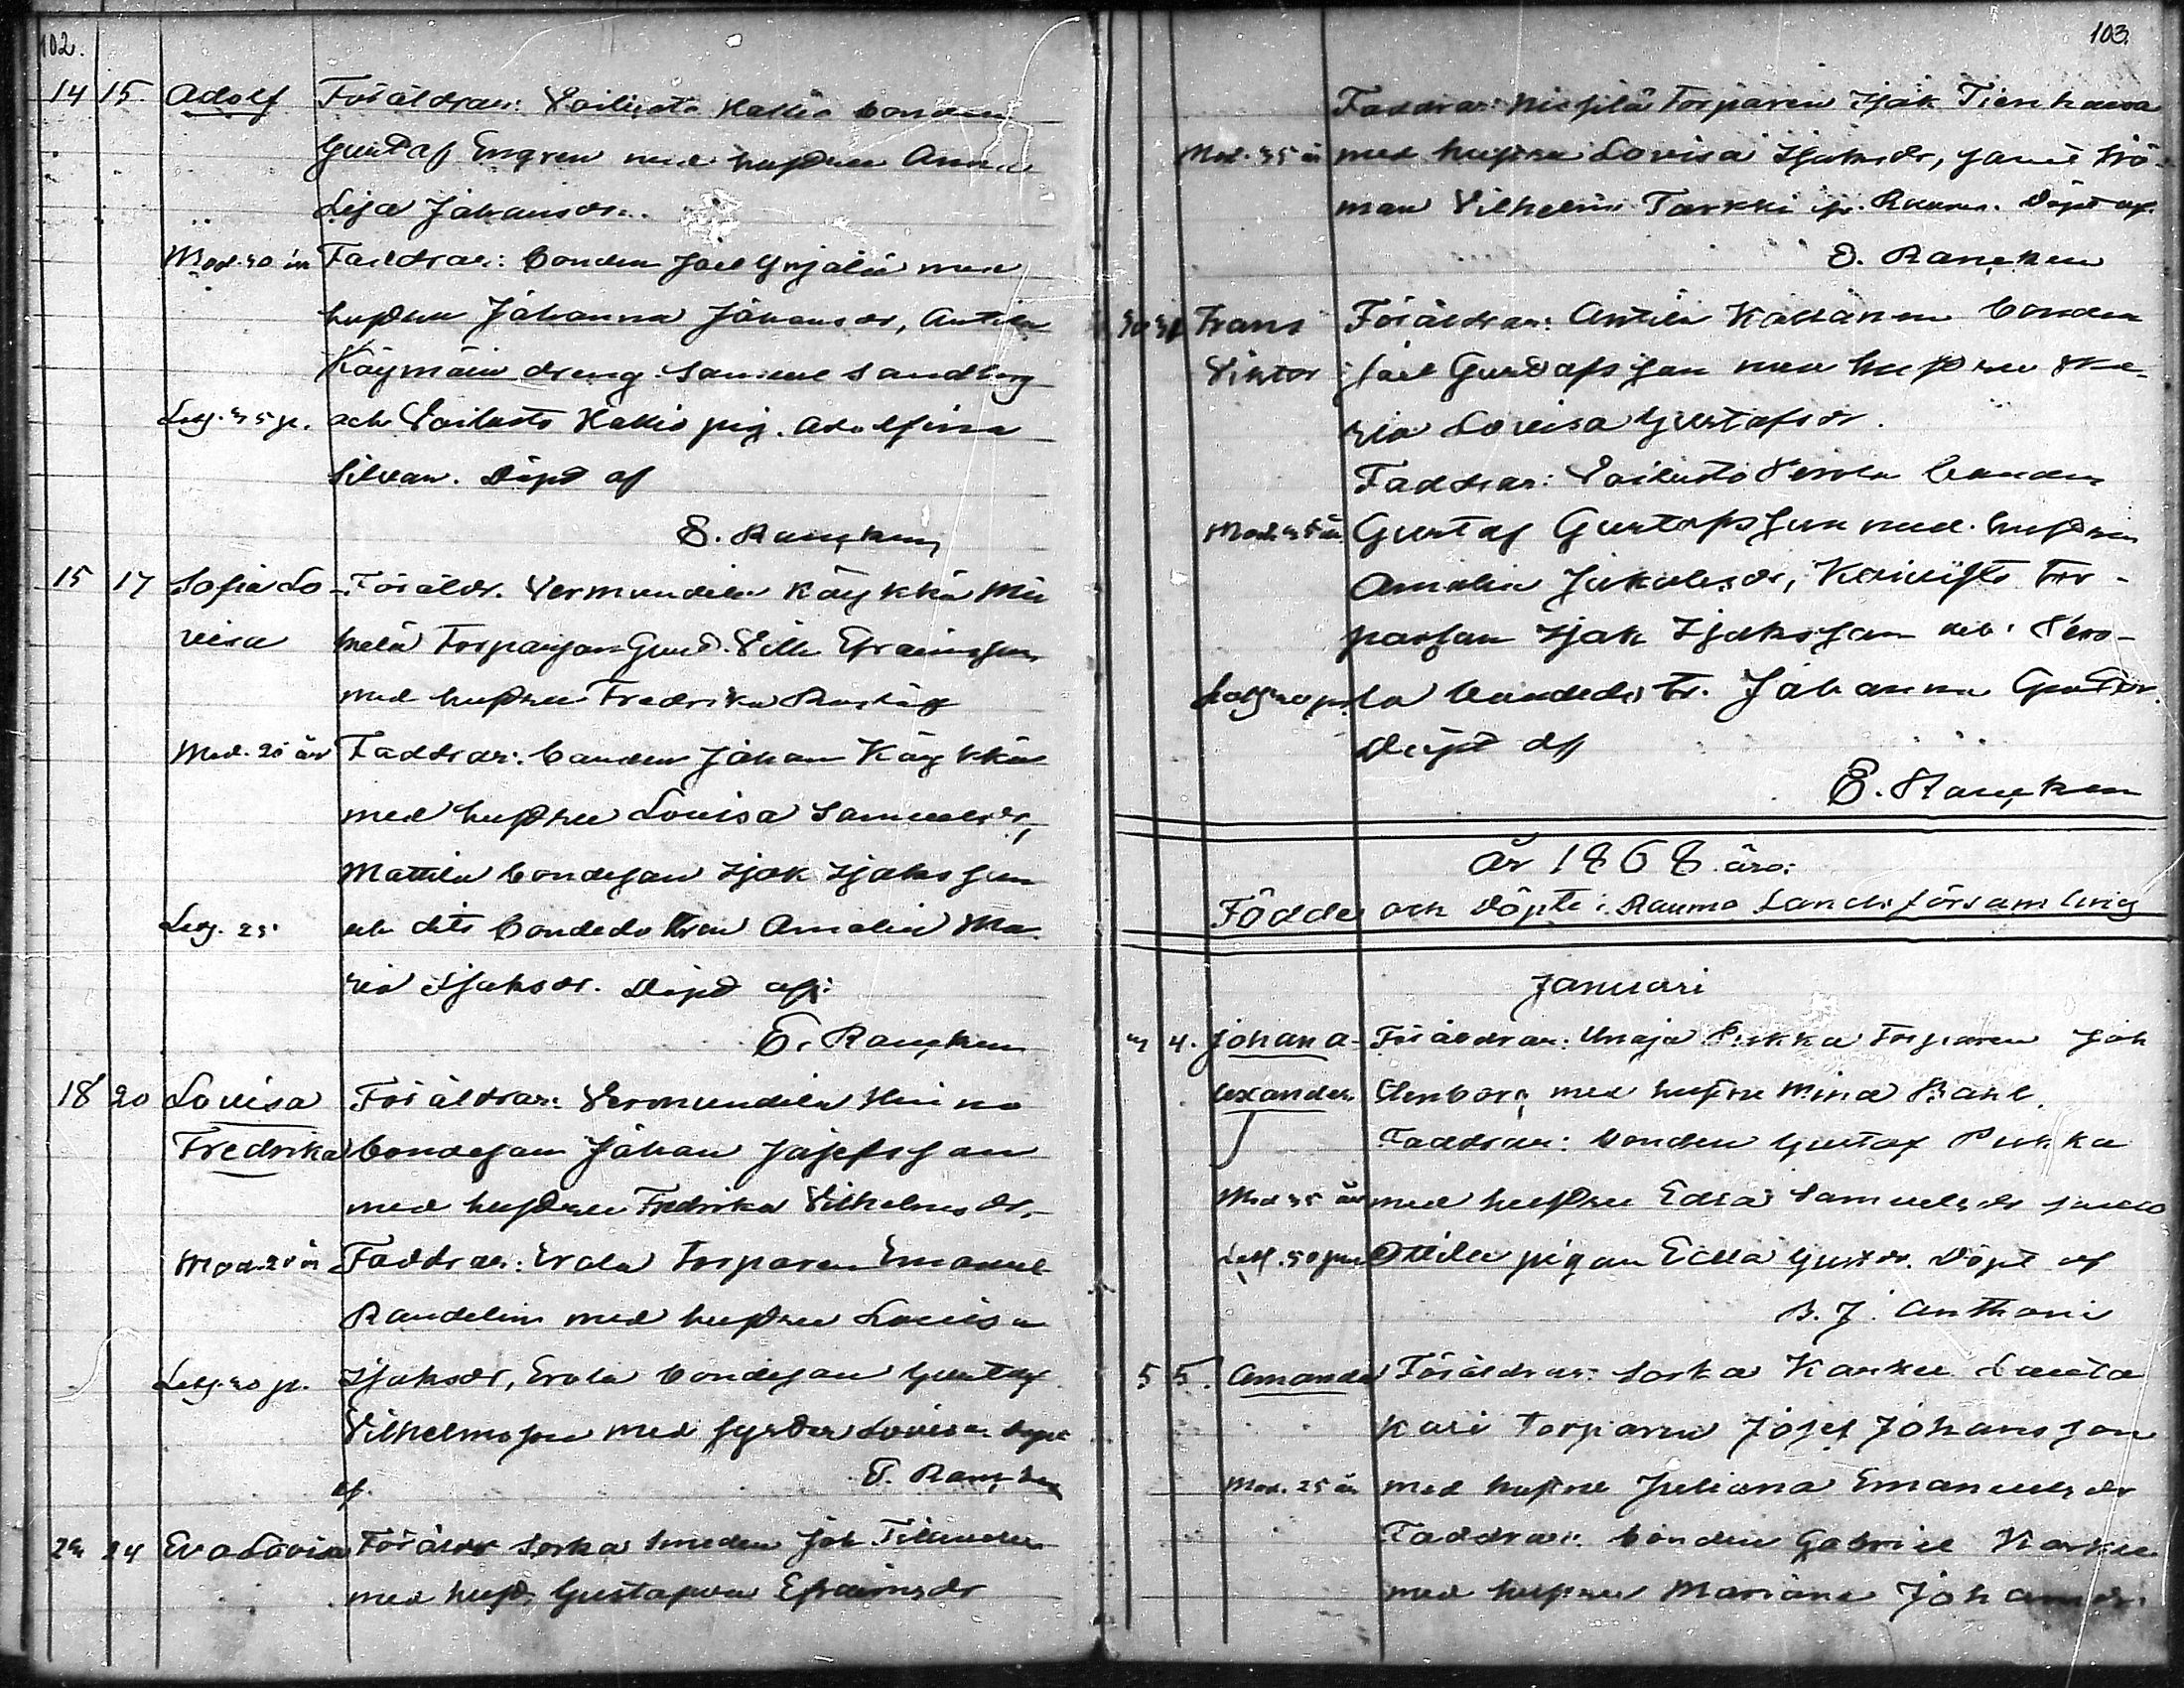 102.
14 15. Adolf Föräldrar: Vailuoto Kallio bonden
Gustaf Engren med hustru Anna
Lisa Johansdr.
Mod. 30 år Faddrar: bonden Joel Yrjälä med
hustru Johanna Johansdr, Antila
Käymäin dreng Samuel Sandberg
och Vailuoto Kallio pig. Adolfina
Silvan. Döpt af
E. Rancken
15 17 Sofia Lo- Föräldr. Vermundila Käykkä
visa Torparson Gust. Vilh. Efraimsson
med hustru Fredrika
Mod. 20 år Faddrar: bonden Johan Käykkä
med hustru Lovisa Samuelsdr,
Mattila bondeson Isak Isaksson
och dito bondedottren Amalia Ma-
ria Isaksdr. Döpt af:
E. Rancken
18 20 Lovisa Föräldrar: Vermundila Heino
Fredrika bondeson Johan Josefsson
med hustru Fredrika Vilhelmsdr.
Mod. år Faddrar: Erola torparen Emanuel
Randelin med hustru Lovisa
Isaksdr, Erola bondeson Gustaf
Vilhelmsson med syster Lovisa Döpt
af. E. Rancken
24 Eva Lovisa Föräldr Sorka Smeden Joh
med hust. Gustafva Efraimsdr
103.
Faddrar: torparen Isak Tienhaara
Mod. 35 år med hustru Lovisa Isaksdr, samt
man Vilhelm Tarkki fr. Raumo. Döpt af.
E. Rancken
Frans Föräldrar: Antila bonden
Viktor Joel Gustafsson med hustru Ma-
ria Lovisa Gustafsdr.
Faddrar: Vailuoto Verola bonden
Mod. år Gustaf Gustafsson med hustru
Amalia Jakobsdr, tor-
parson Isak Isaksson och Vero-
la bondedotr. Johanna Gustdr.
Döpt af
E. Rancken
År 1868 äro:
Födde och Döpte i Raumo Landsförsamling
Januari
4. Johan A- Föräldrar: Unaja Pirkka Torparen Joh
lexander Stenborg med hustru Mina
Faddrar: bonden Gustaf Pirkka
Mod 35 år med hustru Edla Samuelsdr samt
Ottila pigan Edla Gustdr. Döpt af
B. J. Anthoni
5 5. Amanda Föräldrar: Sorka Karku Lauta
kari torparen Josef Johansson
Mod. 25 år med hustru Juliana Emanuelsdr
Faddrar: bonden Gabriel Karku
med hustru Mariana Johansdr.